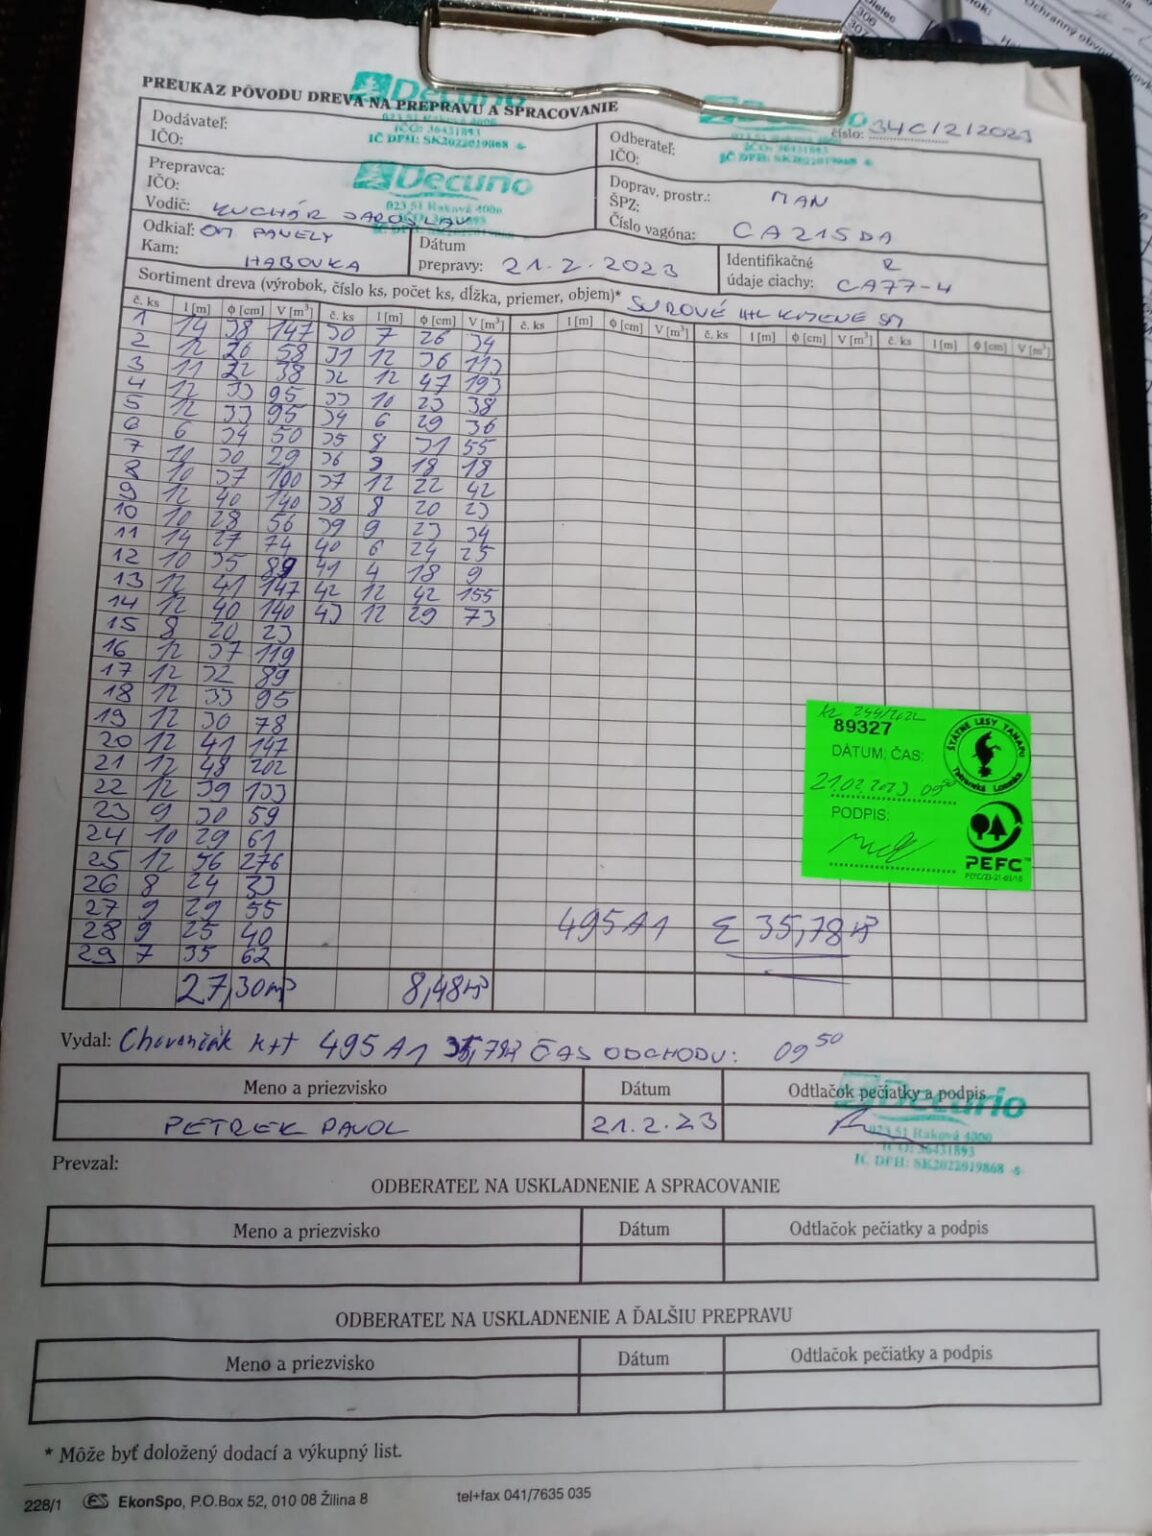 PREUKAZ PÔVODU DREVA NA PREPRAVU A SPRACOVANIE
Decurio
023 51 Raková 4000
IČO: 36431893
IČ DPH: SK2022019868
číslo: 34C/2/2023
IČ DPH: SK2022019868
Dodávateľ:
IČO:
Odberateľ:
IČO:
Prepravca:
IČO:
Vodič: KUCHÁR JAROSLAV
Decurio
023 51 Raková 4000
Doprav, prostr.: MAN
ŠPZ:
Číslo vagóna: CA215DA
Odkiaľ: OM PAVELY
Kam: HABOVKA
Dátum
prepravy: 21.2.2023
Identifikačné R
údaje ciachy: CA77-4
Sortiment dreva (výrobok, číslo ks, počet ks, dĺžka, priemer, objem)* SUROVÉ KMENE SM
č. ks l [m] ϕ [cm] V [m³] č. ks l [m] ϕ [cm] V [m³] č. ks l [m] ϕ [cm] V [m³] č. ks l [m] ϕ [cm] V [m³] č. ks l [m] ϕ [cm] V [m³]
1 14 38 147 30 7 26 34
2 12 26 58 31 12 36 113
3 11 22 38 32 12 47 193
4 12 33 95 33 10 23 38
5 12 33 95 34 6 29 36
6 6 34 50 35 8 31 55
7 10 30 29 36 9 18 18
8 10 37 100 37 12 22 42
9 12 40 140 38 8 20 23
10 10 28 56 39 9 23 34
11 14 27 74 40 6 24 25
12 10 35 89 41 4 18 9
13 12 41 147 42 12 42 155
14 12 40 140 43 12 29 73
15 8 20 23
16 12 37 119
17 12 32 89
18 12 33 95
19 12 30 78
20 12 41 147
21 12 48 202
22 12 39 133
23 9 30 59
24 10 29 61
25 12 56 276
26 8 24 33
27 9 29 55
28 9 25 40
29 7 35 62
27,30m³ 8,48m³
495A1 Σ 35,78m³
89327
DÁTUM, ČAS:
21.02.2023 09⁵⁰
PODPIS:
ŠTÁTNE LESY TANAPU
Tatranská Lomnica
PEFC™
Vydal: Chovančák 495 A1 ČAS ODCHODU: 09⁵⁰
Meno a priezvisko Dátum Odtlačok pečiatky a podpis
PETREK PAVOL 21.2.23
Decurio
023 51 Raková 4000
IČO: 36431893
IČ DPH: SK2022019868
Prevzal:
ODBERATEĽ NA USKLADNENIE A SPRACOVANIE
Meno a priezvisko Dátum Odtlačok pečiatky a podpis
ODBERATEĽ NA USKLADNENIE A ĎALŠIU PREPRAVU
Meno a priezvisko Dátum Odtlačok pečiatky a podpis
* Môže byť doložený dodací a výkupný list.
228/1 EkonSpo, P.O.Box 52, 010 08 Žilina 8 tel+fax 041/7635 035